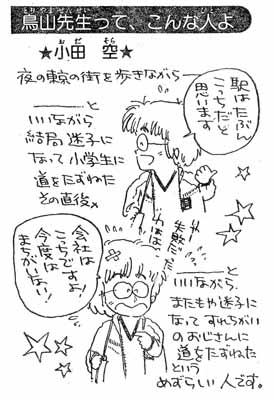 鳥山先生って、こんな人よ
とりやませんせい
ひと
★小田 空★
おだ そら
夜の東京の街を歩きながら――
駅はたぶん
こっちだと
思います
――と
いいながら
結局 迷子に
なって小学生に
道をたずねた
その直後。
失敗だった
やはは
会社は
こっちですよ!
今度は
まちがいない!
――と
いいながら、
またもや迷子に
なって すれちがい
のおじさんに
道をたずねた
という
めずらしい人です。